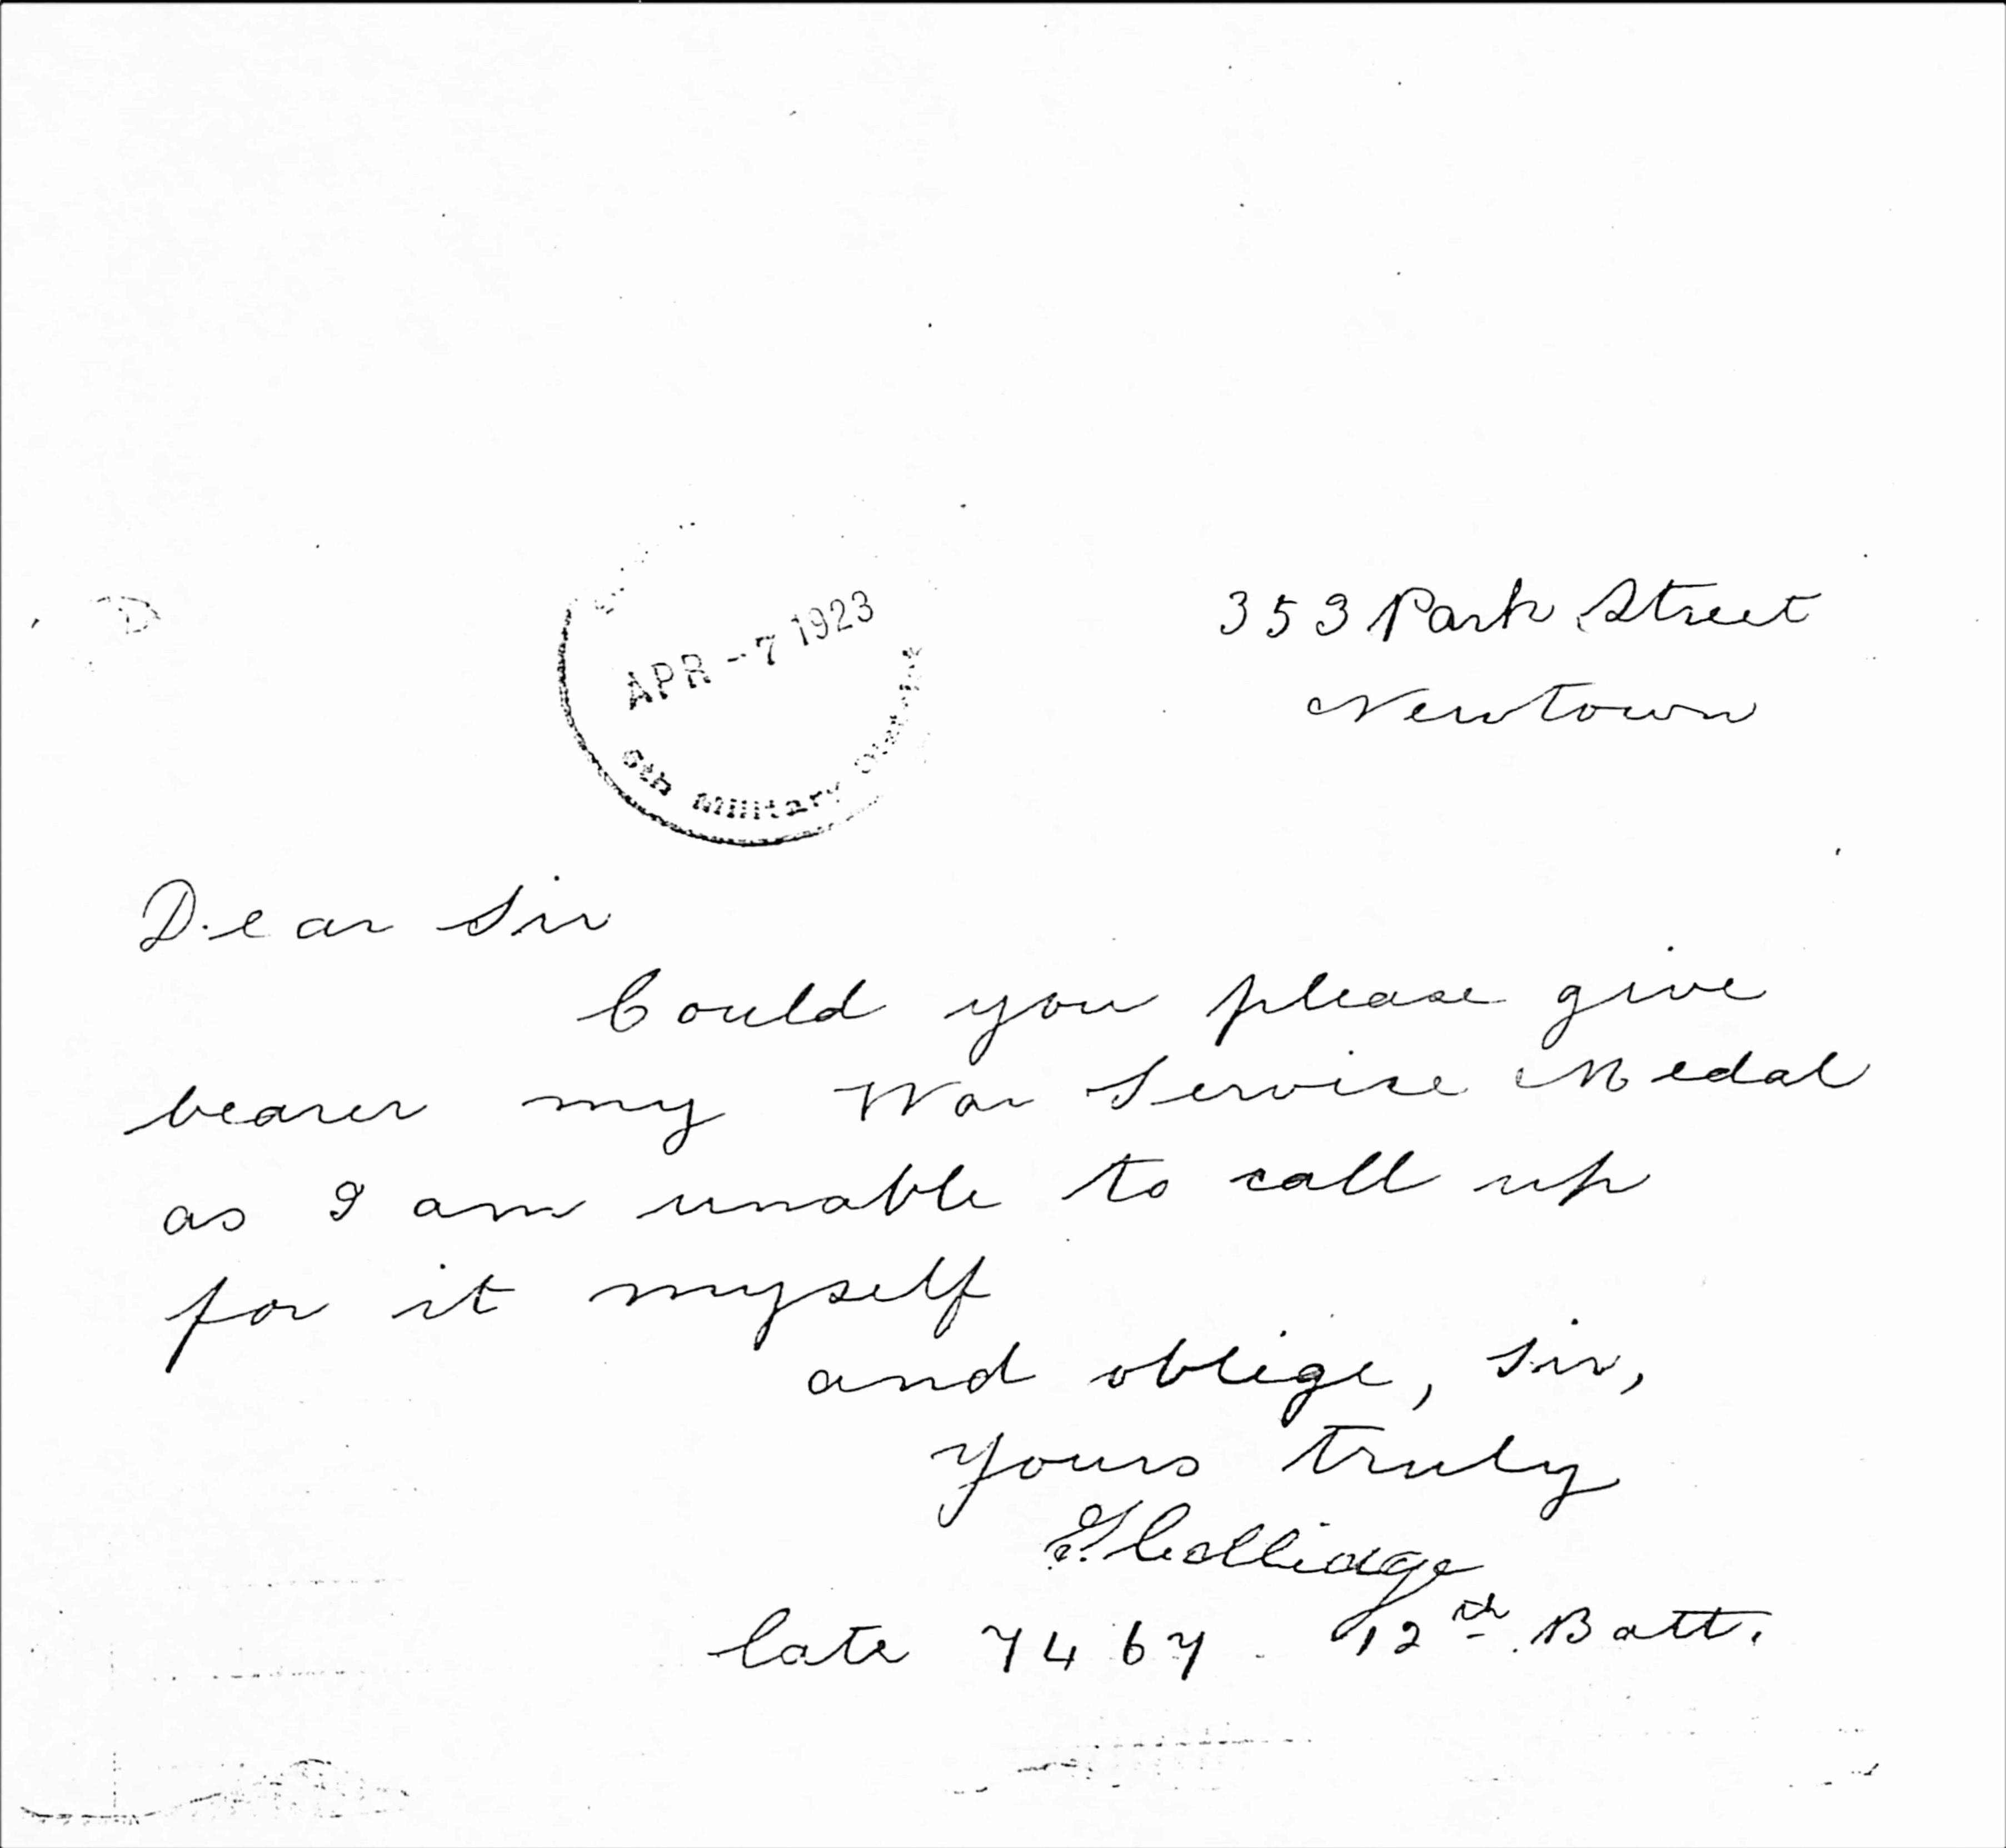 353 Park Street
Newtown
APR -7 1923
6th Military District
Dear Sir
Could you please give
bearer my War Service Medal
as I am unable to call up
for it myself
and oblige, Sir,
Yours truly
late 7467 - 12th Batt.